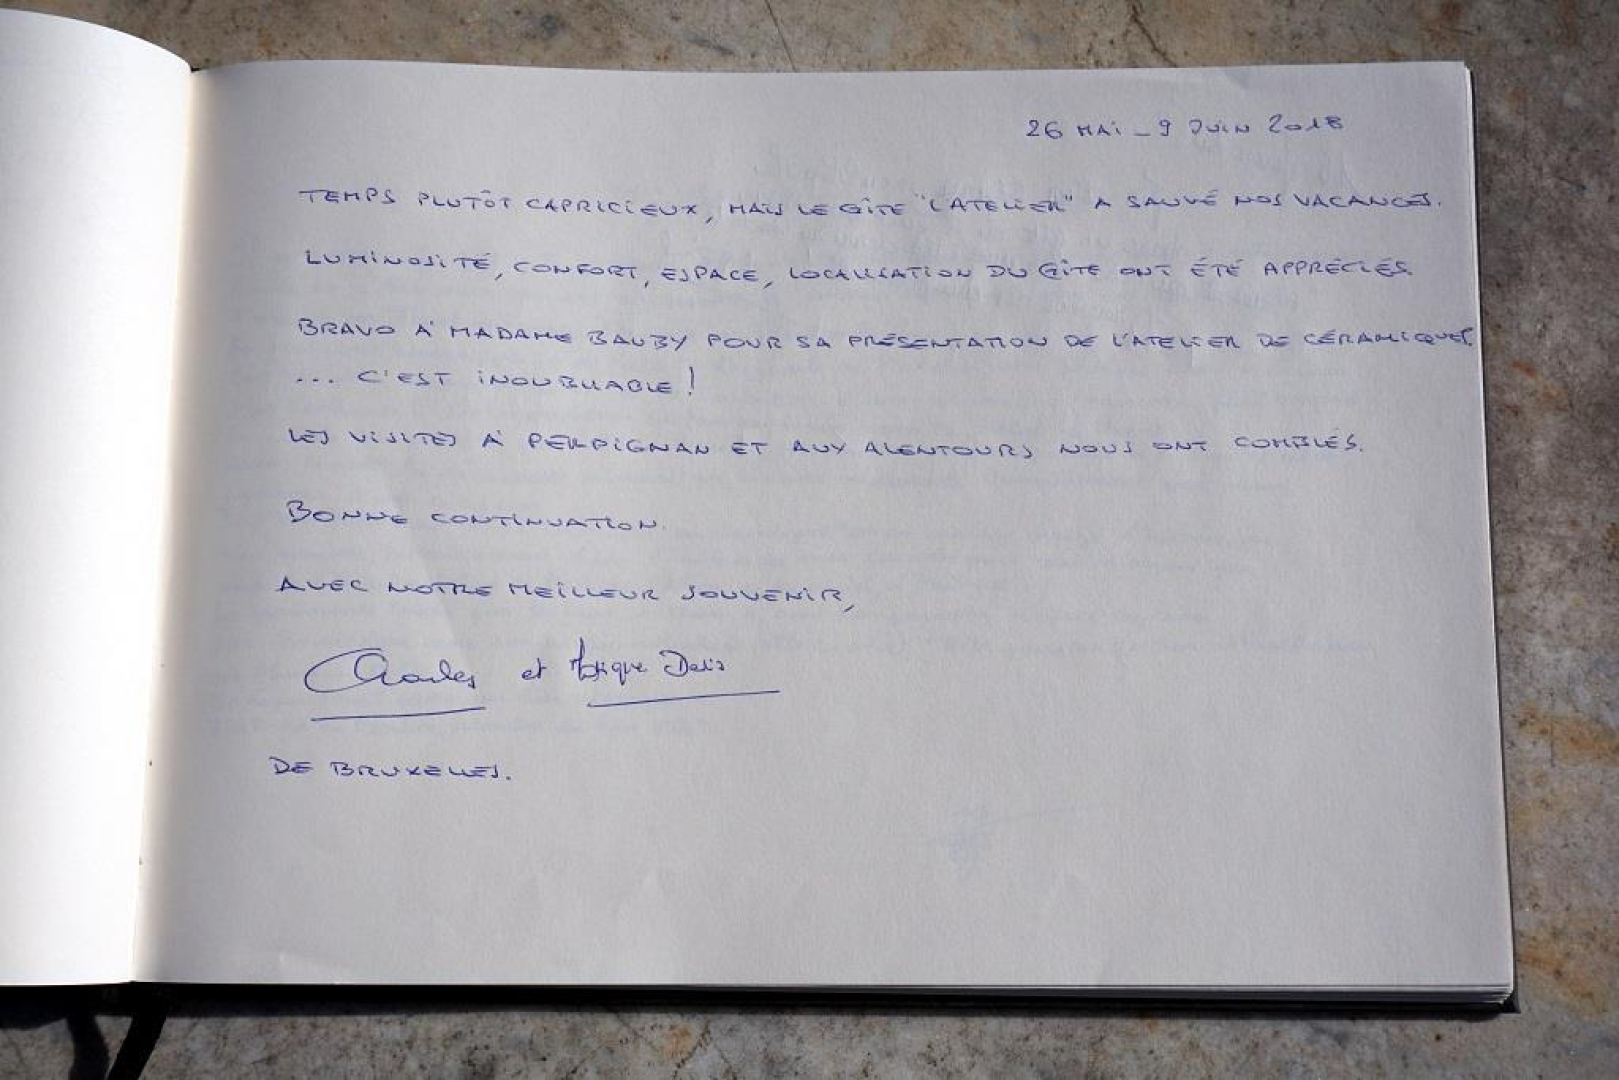 26 MAI – 9 JUIN 2018
TEMPS PLUTÔT CAPRICIEUX, MAIS LE GÎTE "L'ATELIER" A SAUVÉ NOS VACANCES.
LUMINOSITÉ, CONFORT, ESPACE, LOCALISATION DU GÎTE ONT ÉTÉ APPRÉCIÉS.
BRAVO À MADAME BAUBY POUR SA PRÉSENTATION DE L'ATELIER DE CÉRAMIQUES
... C'EST INOUBLIABLE !
LES VISITES À PERPIGNAN ET AUX ALENTOURS NOUS ONT COMBLÉS.
BONNE CONTINUATION.
AVEC NOTRE MEILLEUR SOUVENIR,
Charles et
DE BRUXELLES.